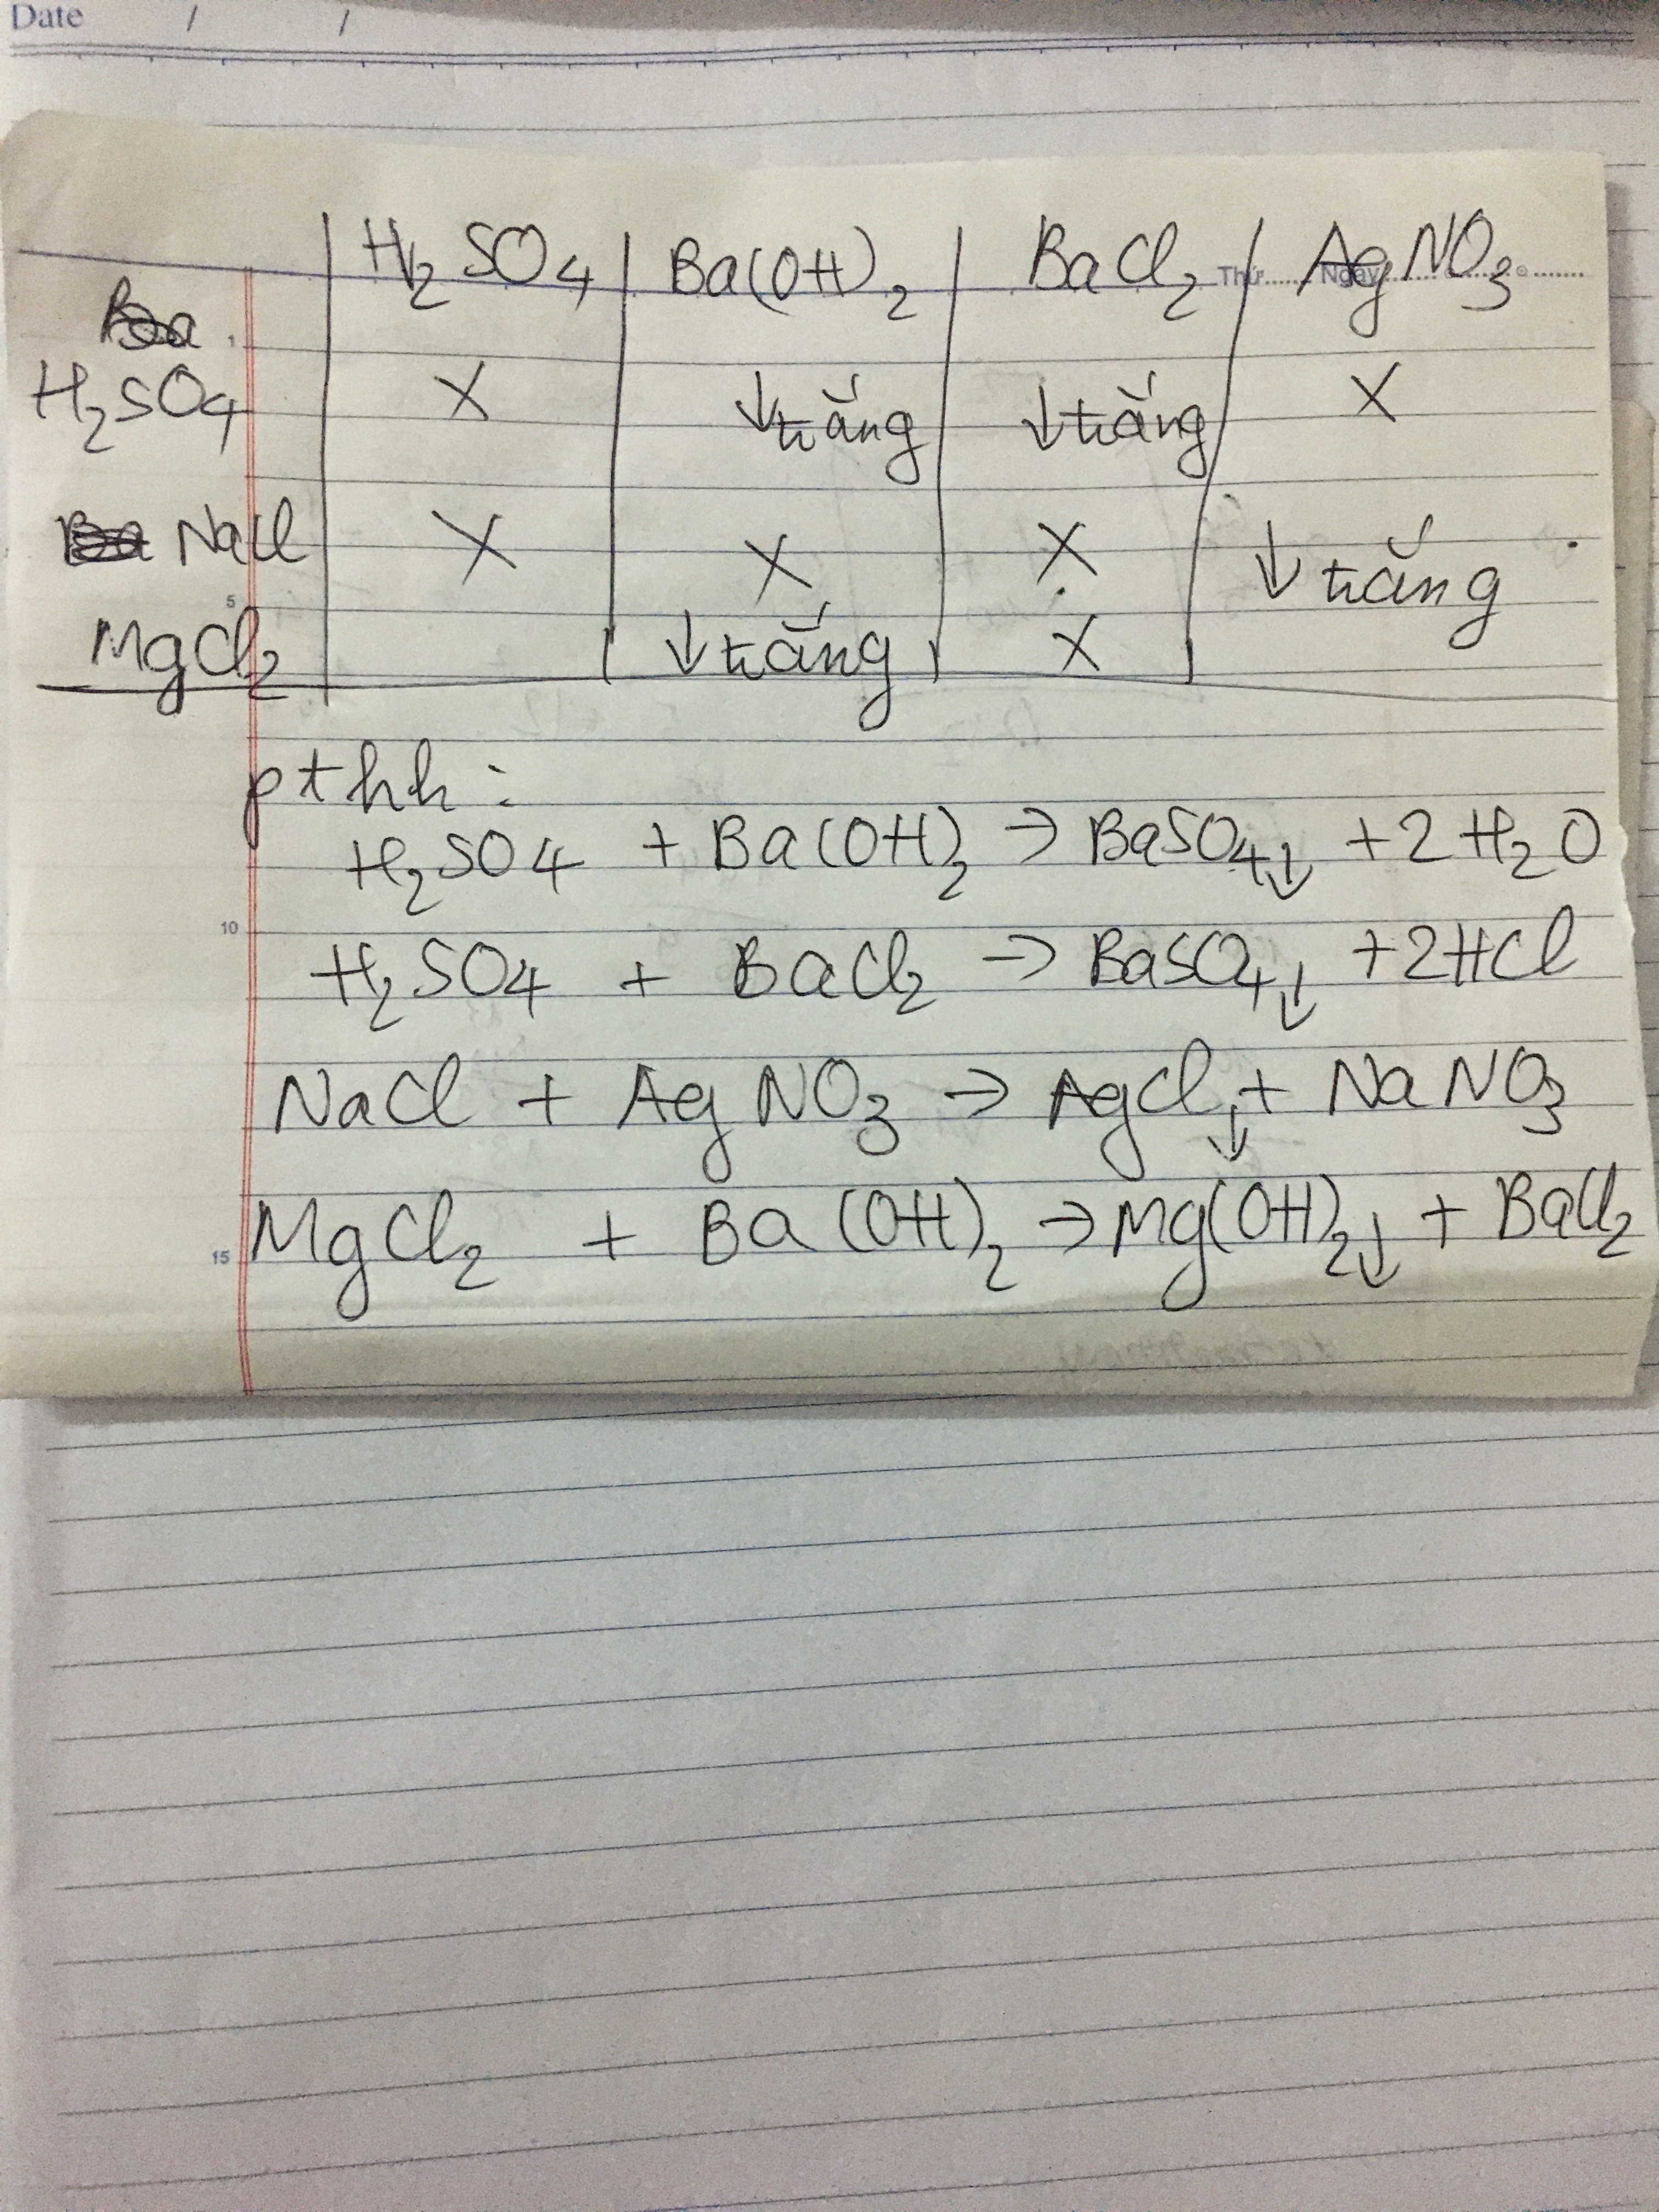 Date / /
Thứ Ngày
H₂SO₄ | Ba(OH)₂ | BaCl₂ | AgNO₃
Ba 1
H₂SO₄ X ↓trắng ↓trắng X
Ba NaCl X X X ↓ trắng
5
MgCl₂ ↓trắng X
pthh :
H₂SO₄ + Ba(OH)₂ → BaSO₄↓ + 2H₂O
10
H₂SO₄ + BaCl₂ → BaSO₄↓ + 2HCl
NaCl + AgNO₃ → AgCl↓ + NaNO₃
15 MgCl₂ + Ba(OH)₂ → Mg(OH)₂↓ + BaCl₂